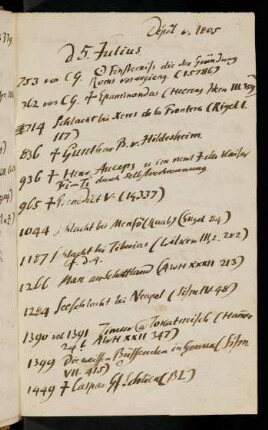 Depôt v. 1805
d 5. Julius
753 vor C.G. ☉ Finsterniss die der Gründung
Roms vorausgieng. (15786)
362 vor C.G. † Epaminondas (Heeren
714 Schlacht bei Xeres de la Frontera (Rigel I.
117)
836 † Gunthar B. v. Hildesheim
936 † Henr. Auceps u
durch Selbstverbrennung
965 † Benedict V. (
1044 Schlacht bei Menfö (Raab) (Engel 24)
1187 Schlacht bei Tiberias (
† d. 4.
1266 Man an Schottland (AWH XXXII 213)
1284 Seeschlacht bei Neapel (Sism IV. 48)
1390 vel 1391 Timur & Tokatmisch (Hamer
24. AWH XXII 347)
1399 Die weissen Büssenden in Genua (Sism
VII. 415)
1449 † Caspar Gf. Schlick (BL)